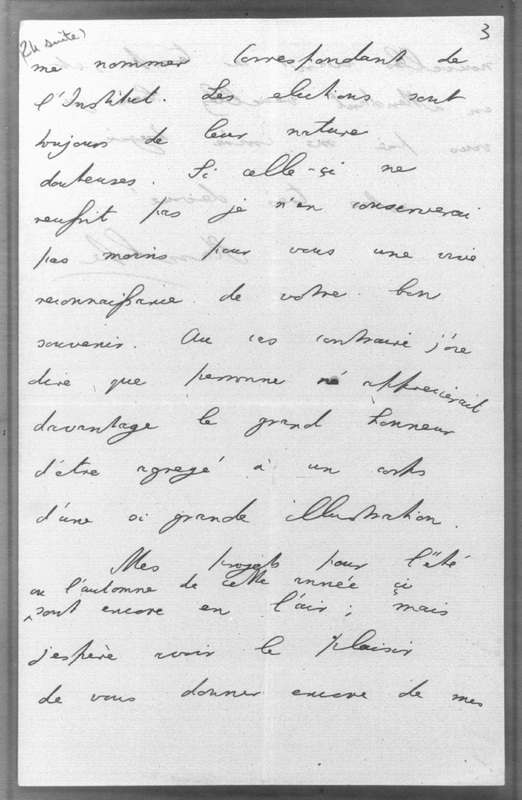 (24 suite)
3
me nommer Correspondant de
l'Institut. Les elections sont
toujours de leur nature
douteuses. Si celle-çi ne
reussit pas je n'en conserverai
pas moins pour vous une vive
reconnaissance de votre bon
souvenir. Au cas contraire j'ose
dire que personne n' apprecierait
davantage le grand honneur
d'être agregé à un corps
d'une si grande illustration.
Mes projets pour l'été
ou l'automne de cette année çi
sont encore en l'air; mais
j'espère avoir le plaisir
de vous donner encore de mes